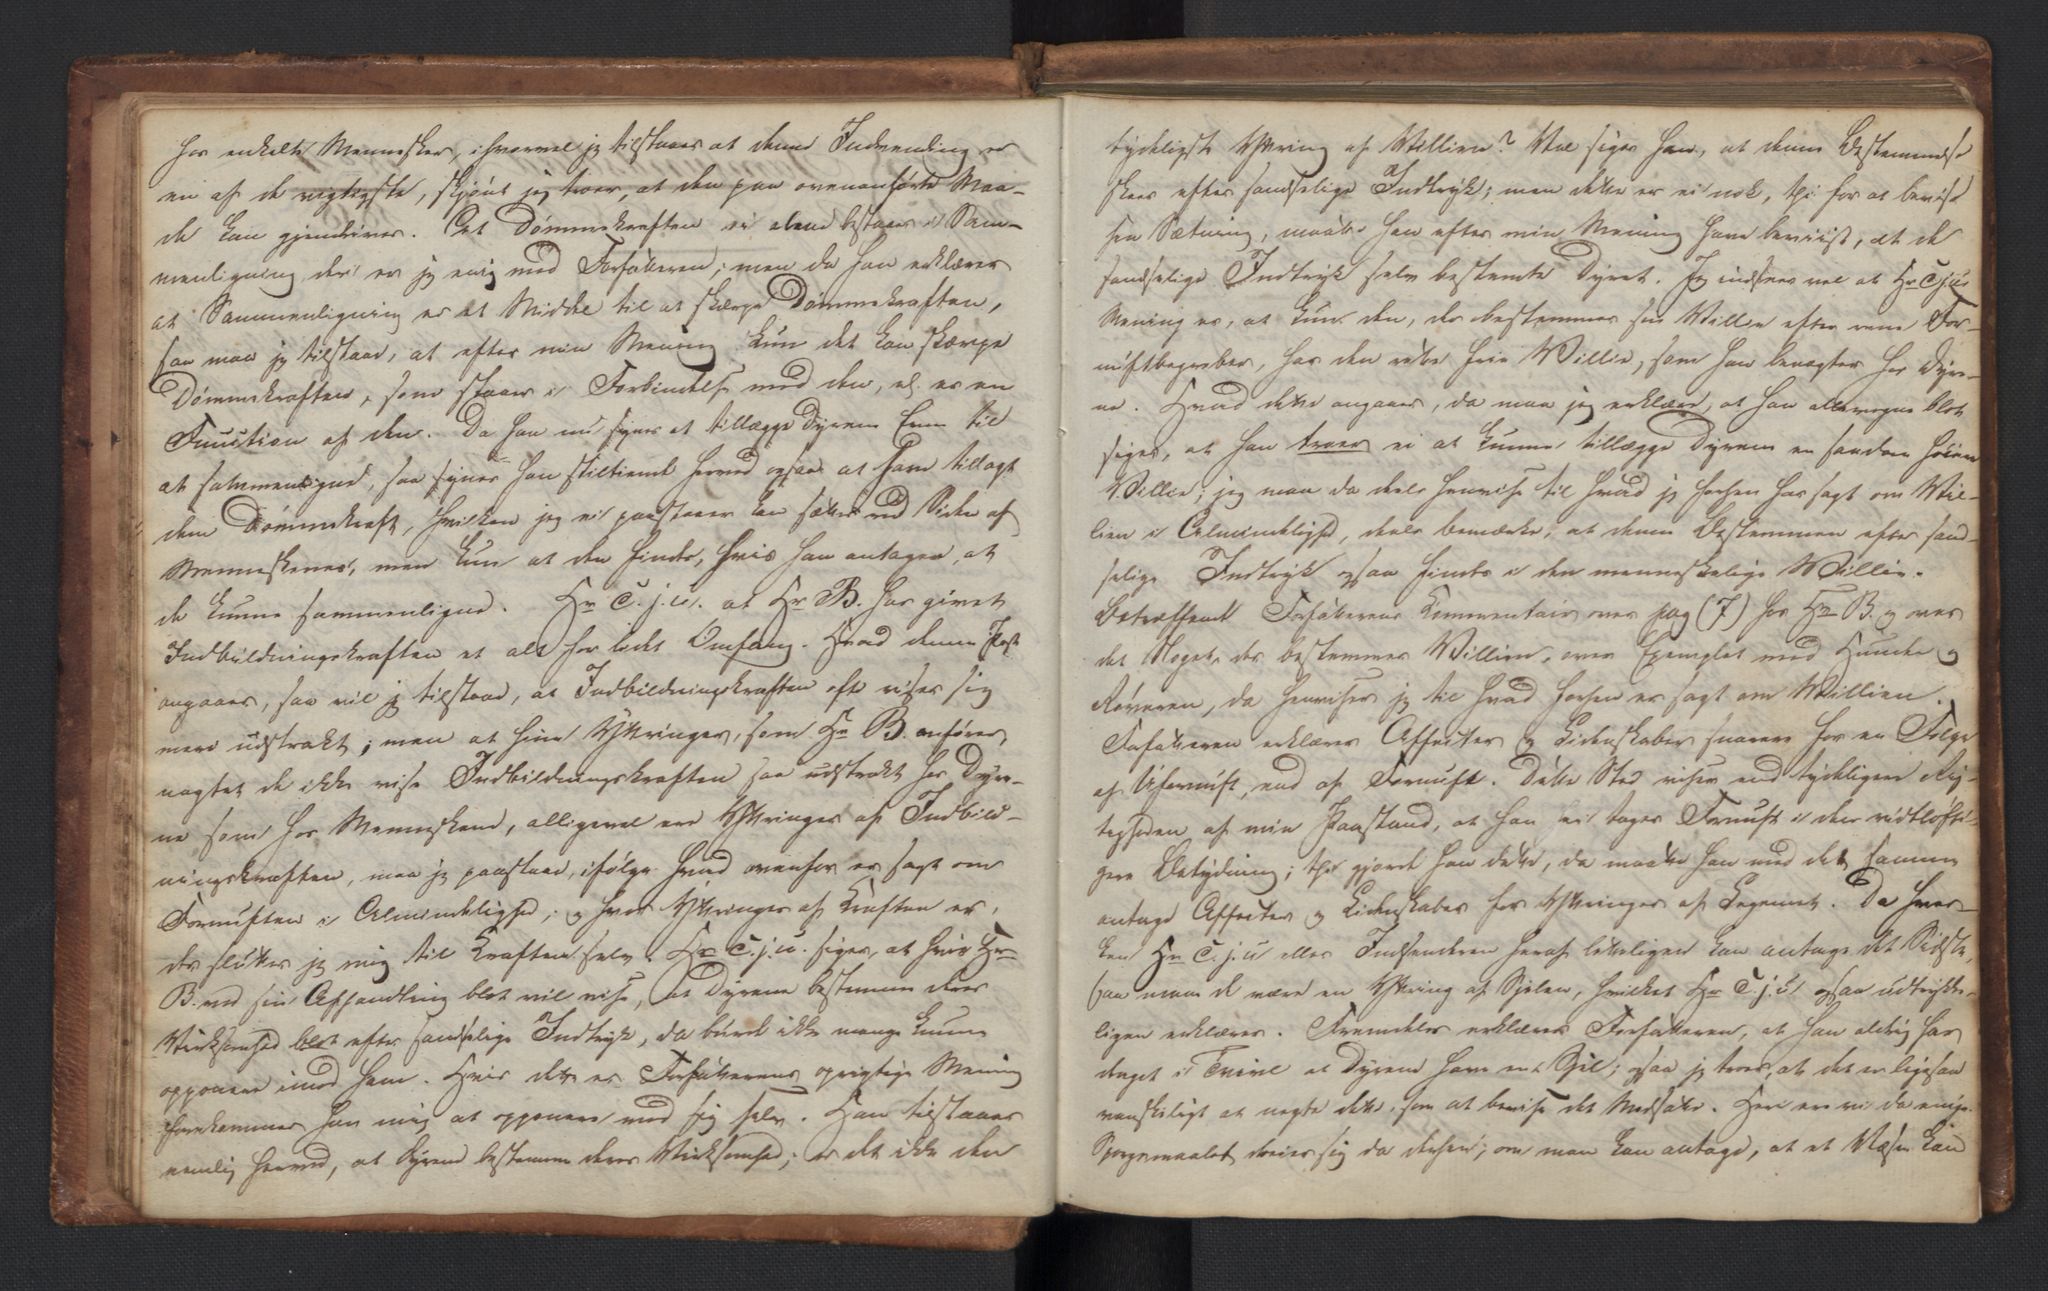 hos enkelte Mennesker, ihvorvel jeg tilstaaer at denne Indvending er
en af de vigtigste, skjönt jeg troer, at den paa ovenanförte Maa-
de kan gjendrives. At Dömmekraften ei alene bestaaer i Sam-
menligning deri er jeg enig med Forfatteren; men da han erklærer
at Sammenligning er et Middel til at skærpe Dömmekraften,
saa maa jeg tilstaae, at efter min Mening kun det kan skærpe
Dömmekraften, som staaer i Forbindelse med den, el. er en
Function af den. Da han nu synes at tillægge Dyrene Evne til
at sammenligne, saa synes han stiltiende herved ogsaa at have tillagt
dem Dömmekraft, hvilken jeg ei paastaaer kan sættes ved Siden af
Menneskenes, men kun at den findes, hvis han antager, at
de kunne sammenligne. Hr C. j. u. at Hr B. har givet
Indbildningskraften et alt for lidet Omfang. Hvad denne Post
angaaer, saa vil jeg tilstaae, at Indbildningskraften ofte viser sig
mere udstrakt; men at hine Yttringer, som Hr B. anförer,
uagtet de ikke vise Indbildningskraften saa udstrakt hos Dyre-
ne som hos Menneskene, alligevel ere Yttringer af Indbild-
ningskraften, maa jeg paastaae, ifölge hvad ovenfor er sagt om
Fornuften i Almindelighed; og hvor Yttringer af Kraften er,
der slutter jeg mig til Kraften selv. Hr C. j. u. siger, at hvis Hr
B. ved sin Afhandling blot vil vise, at Dyrene bestemme deres
Virksomhed blot efter sandselige Indtryk, da burde ikke mange kunne
opponere imod ham. Hvis dette er Forfatterens oprigtige Mening
forekommer han mig at opponere mod sig selv. Han tilstaaer
nemlig herved, at Dyrene bestemme deres Virksomhed; er det ikke den
tydeligste Yttring af Villien? Vel siger han, at denne Bestemmelse
skeer efter sandselige Indtryk; men dette er ei nok, thi for at bevise
sin Sætning, maatte han efter min Mening have beviist, at de
sandselige Indtryk selv bestemte Dyret. Jeg indseer vel at Hr C.j.u's
Mening er, at kun den, der bestemmer sin Villie efter rene For-
nuftbegreber, har den rette frie Villie, som han benegter hos Dyre-
ne. Hvad dette angaaer, da maa jeg erklære, at han allevegne blot
siger, at han troer ei at kunne tillægge Dyrene en saadan höiere
Villie; jeg maa da deels henvise til hvad jeg forhen har sagt om Vil-
lien i Almindelighed, deels bemærke, at denne Bestemmen efter sand-
selige Indtryk ogsaa findes i den menneskelige Villie.
Betræffende Forfatterens Commentair over pag (7) hos Hr B. og over
det Noget, der bestemmer Villien, over Exemplet med Hunden og
Röveren, da henviser jeg til hvad forhen er sagt om Villien.
Forfatteren erklærer Affecter og Lidenskaber snarere for en Fölge
af Ufornuft, end af Fornuft. Dette Sted viser end tydeligere Rig-
tigheden af min Paastand, at han her tager Fornuft i den vidtlöfti-
gere Betydning; thi gjorde han dette, da maatte han med det samme
antage Affecter og Lidenskaber for Yttringer af Legemet. Da hver-
ken Hr C. j. u eller Indsenderen heraf letteligen kan antage det Sidste,
saa maa d være en Yttring af Sjelen, hvilket Hr C. j. u ogsaa udtrykke-
ligen erklærer. Fremdeles erklærer Forfatteren, at han aldrig har
draget i Tvivl at Dyrene have en Sjel; ogsaa jeg troer, at det er ligesaa
vanskeligt at negte dette, som at bevise det Modsatte. Heri ere vi da enige.
Spörgsmaalet dreier sig da derhen; om man kan antage, at et Væsen kan